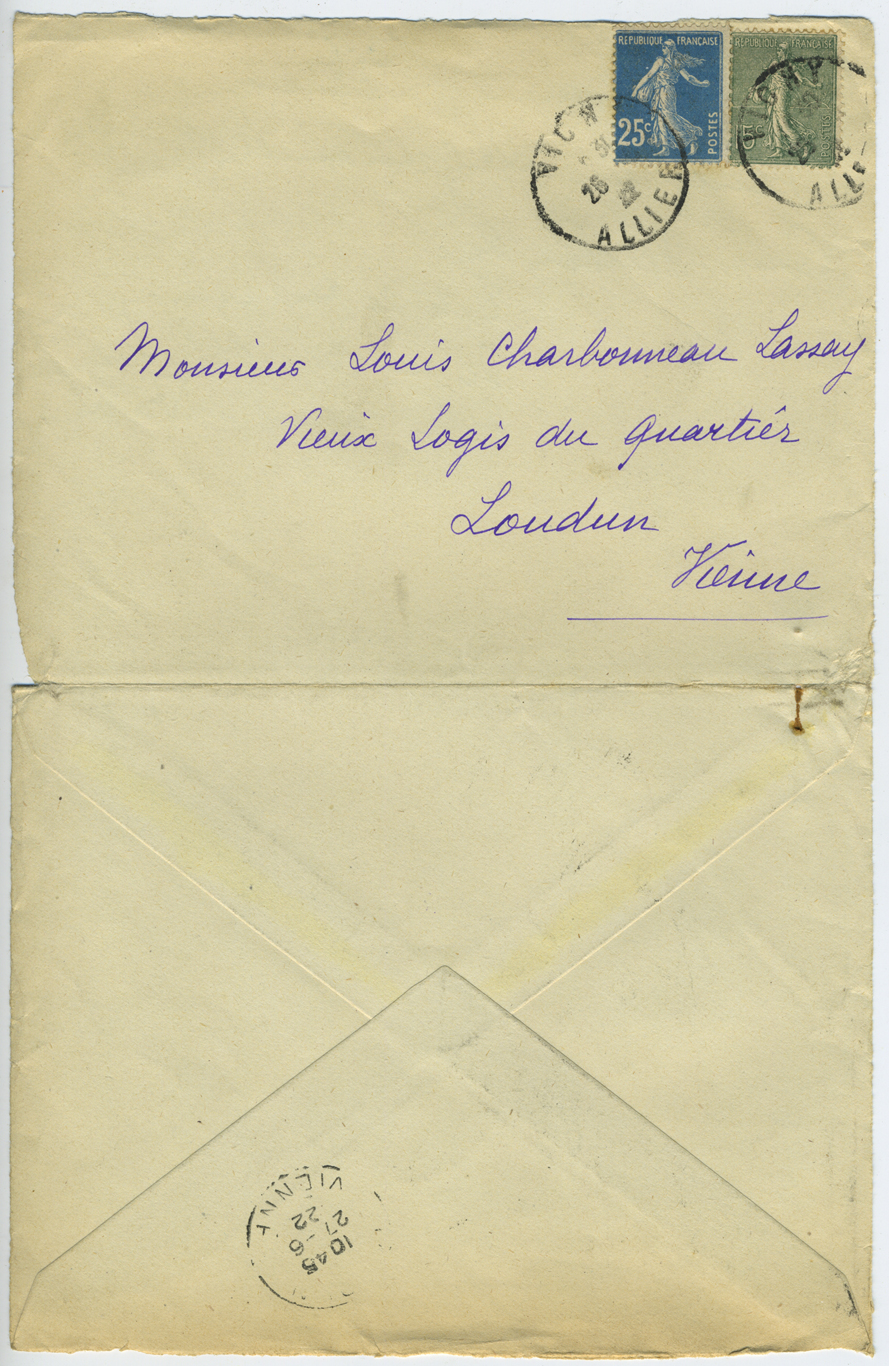 REPUBLIQUE FRANÇAISE
25c
POSTES
REPUBLIQUE FRANÇAISE
POSTES
VICHY
26
22
ALLIER
VICHY
ALL
Monsieur Louis Charbonneau Lassay
Vieux Logis du Quartier
Loudun
Vienne
VIENNE
1045
27-6
22